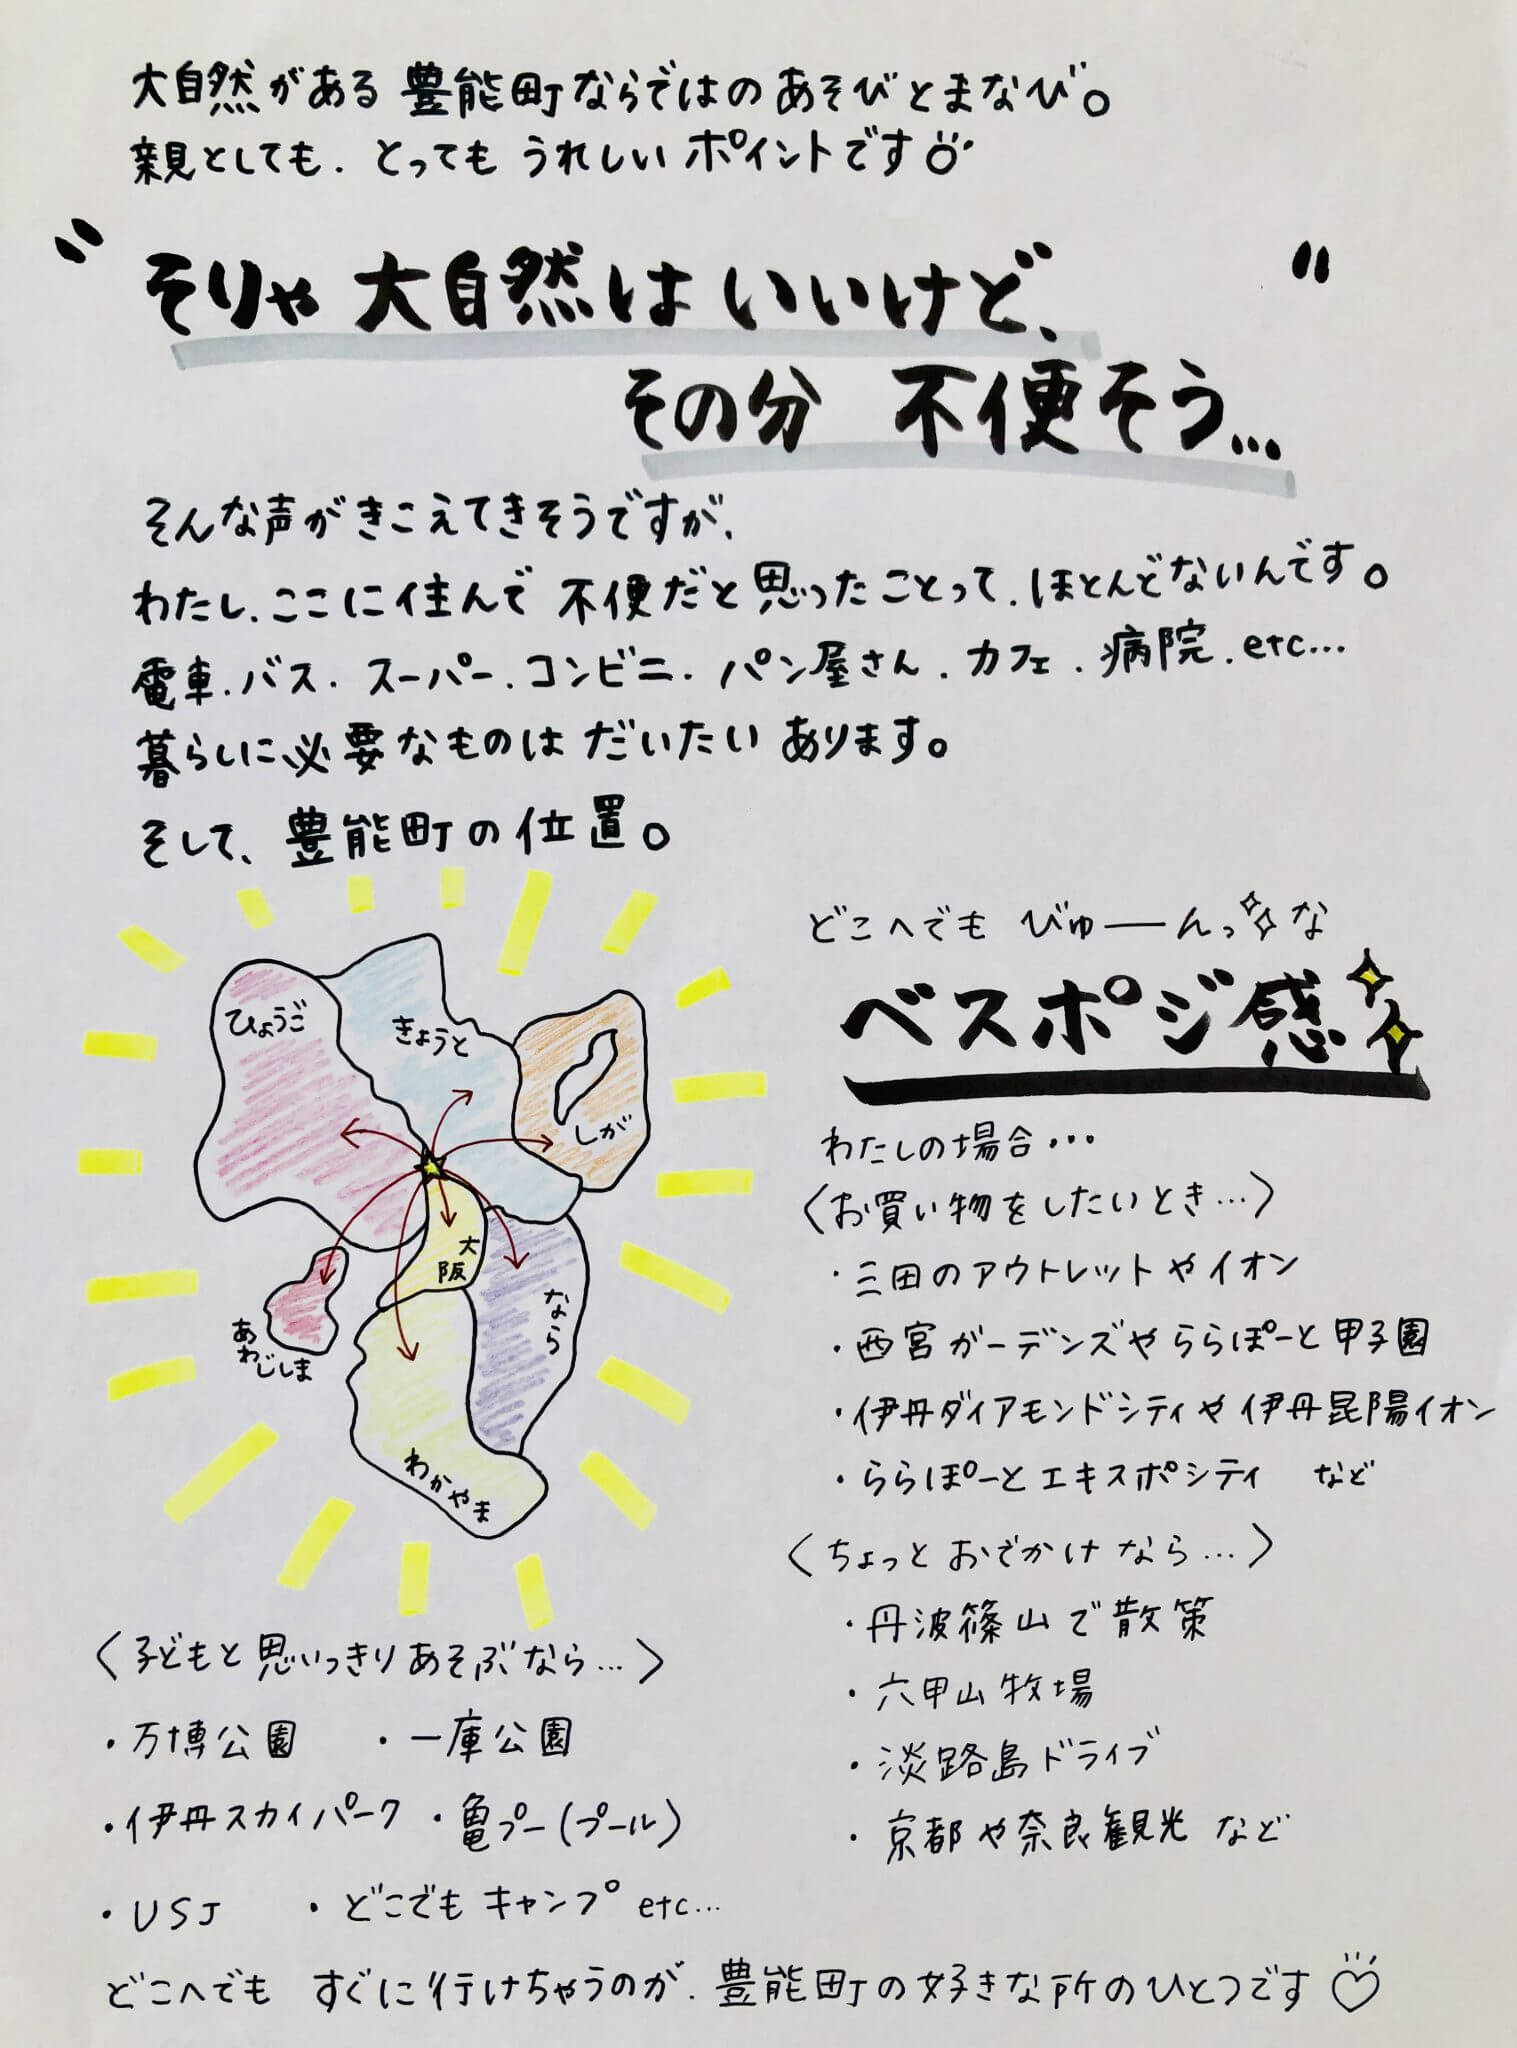 大自然がある 豊能町ならではの あそびとまなび。
親としても、とっても うれしい ポイントです
"そりゃ 大自然は いいけど、
その分 不便そう..."
そんな声がきこえてきそうですが、
わたし、ここに住んで 不便だと思ったことって、ほとんどないんです。
電車、バス、スーパー、コンビニ、パン屋さん、カフェ、病院、etc...
暮らしに必要なものは だいたい あります。
そして、豊能町の位置。
どこへでも びゅーんっな
ベスポジ感
ひょうご
きょうと
しが
大阪
なら
あわじしま
わかやま
わたしの場合・・・
〈お買い物をしたいとき...〉
・三田のアウトレットやイオン
・西宮ガーデンズやららぽーと甲子園
・伊丹ダイアモンドシティや伊丹昆陽イオン
・ららぽーとエキスポシティ など
〈ちょっと おでかけ なら...〉
・丹波篠山で散策
・六甲山牧場
・淡路島ドライブ
・京都や奈良観光 など
〈子どもと思いっきりあそぶなら...〉
・万博公園 ・一庫公園
・伊丹スカイパーク ・亀プー(プール)
・USJ ・どこでもキャンプ etc...
どこへでも すぐに行けちゃうのが、豊能町の好きな所のひとつです♡